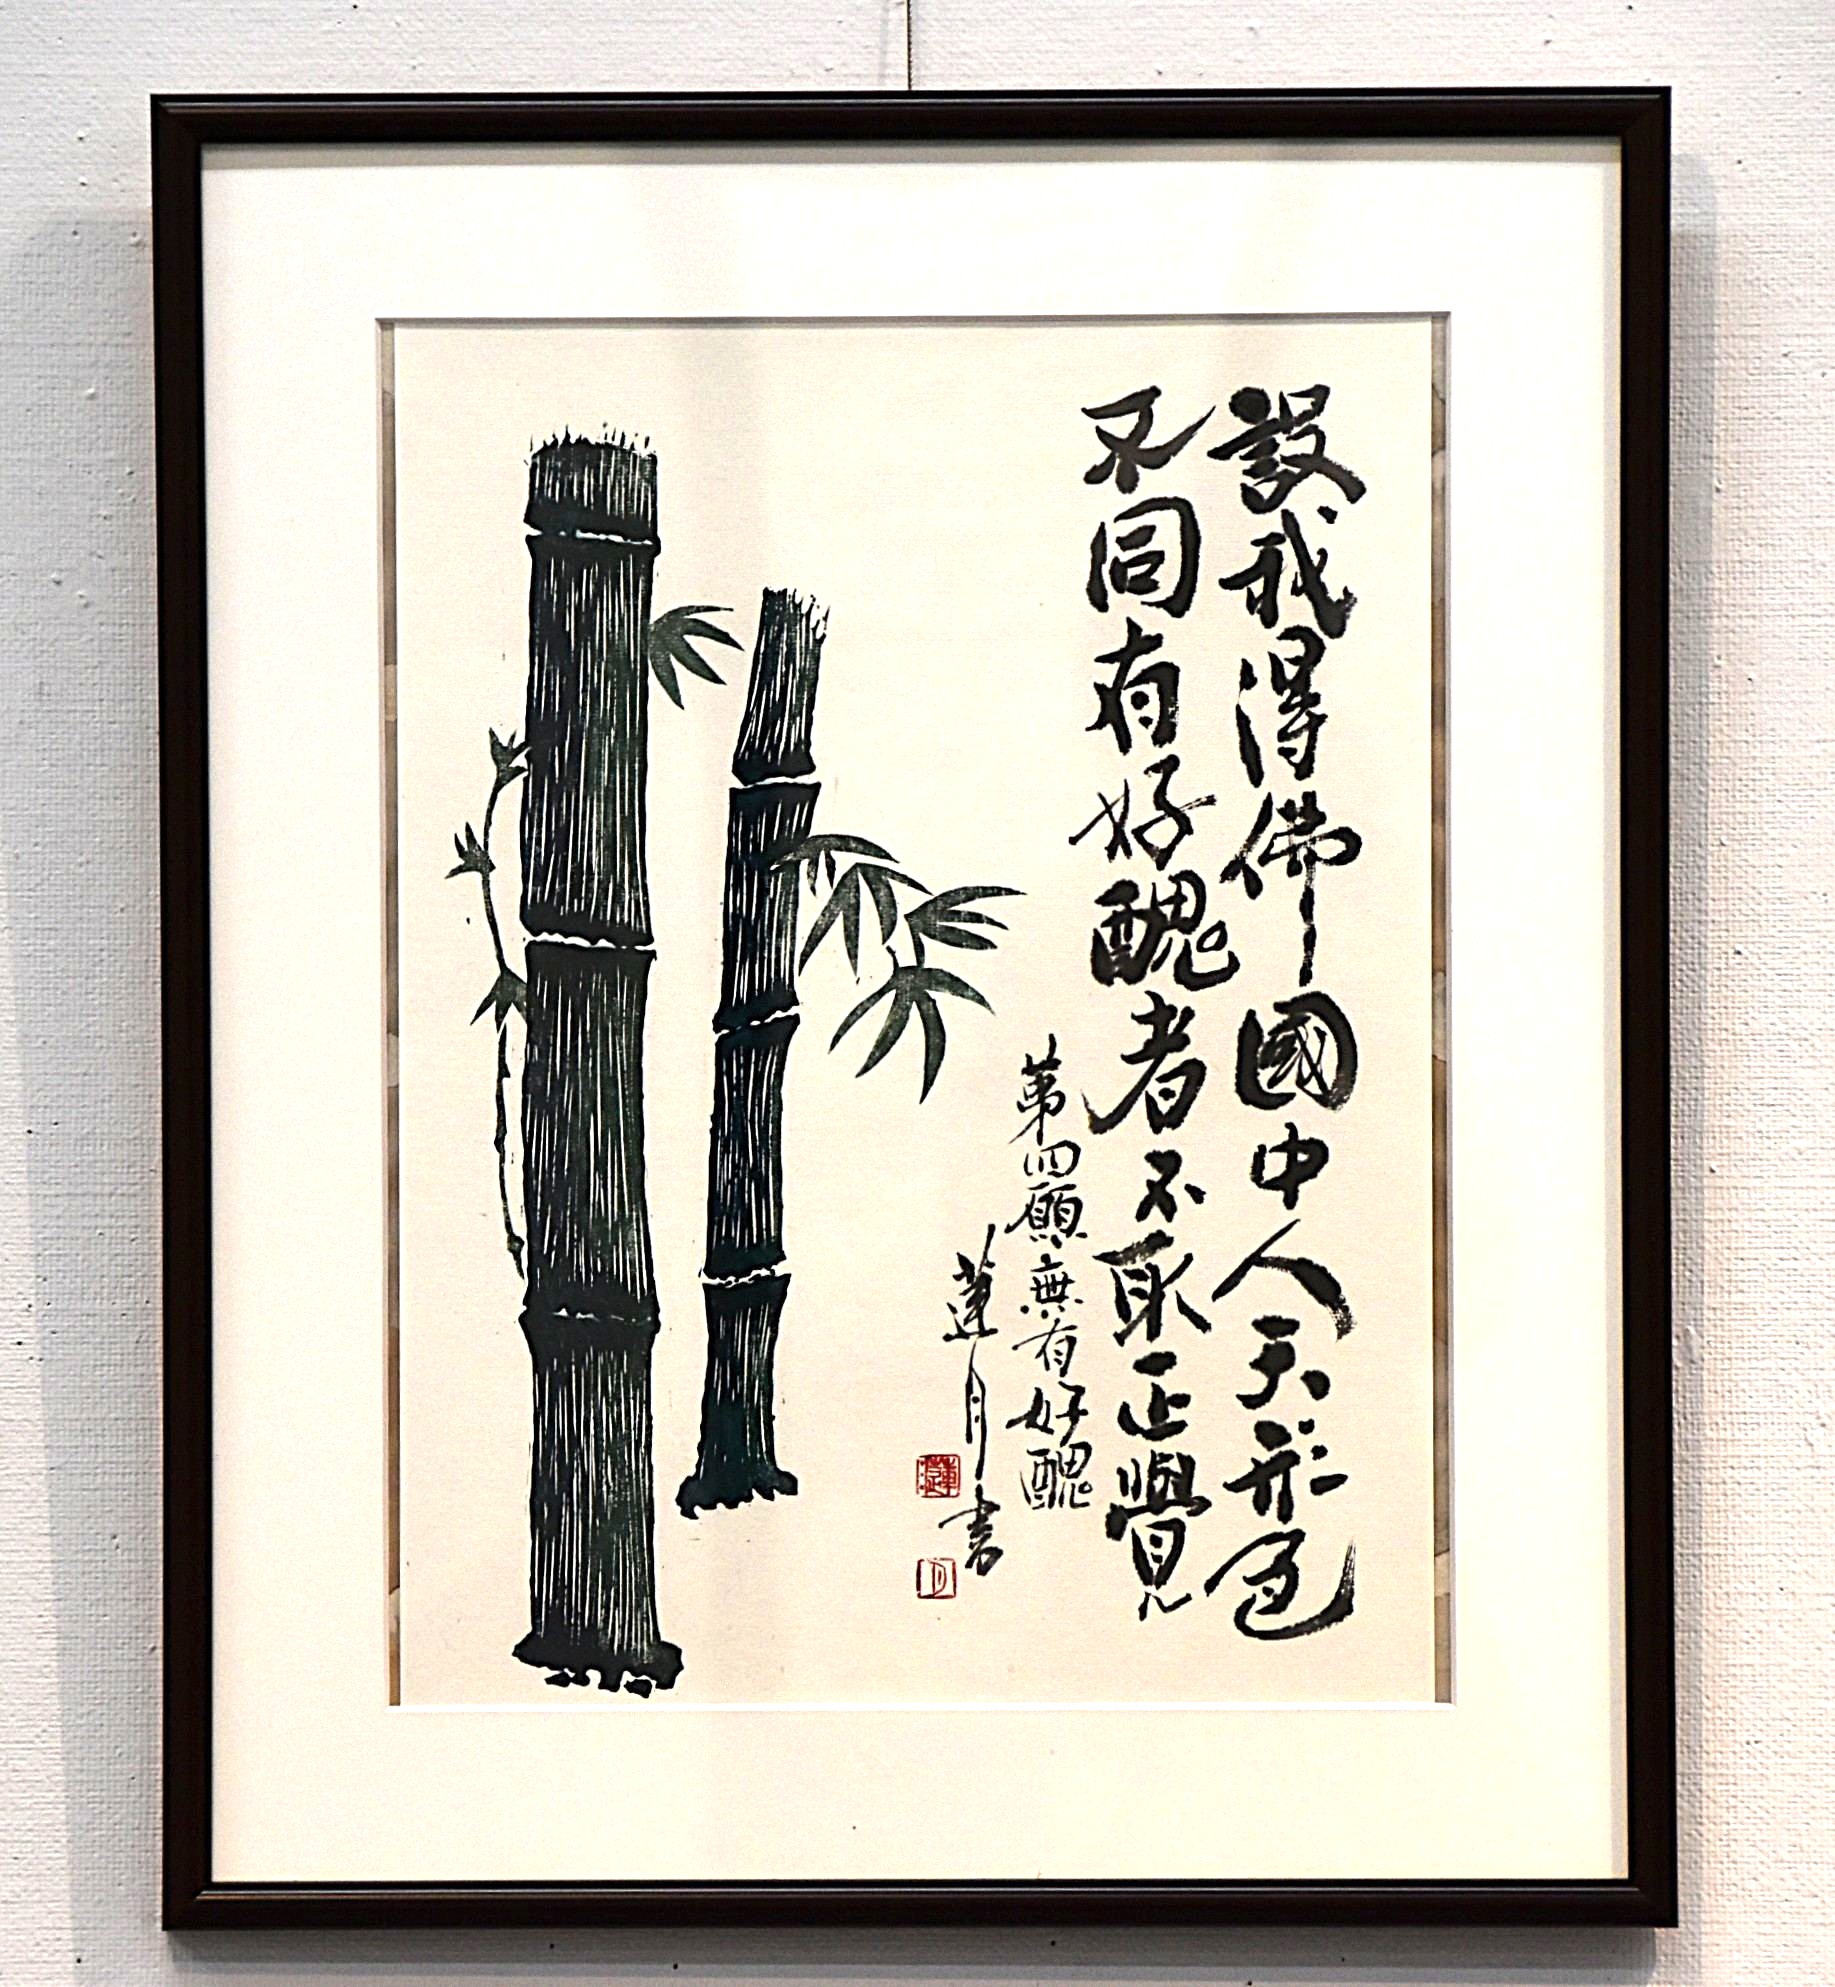 設我得佛国中人天形色
不同有好醜者不取正覺
第四願無有好醜
蓮月書